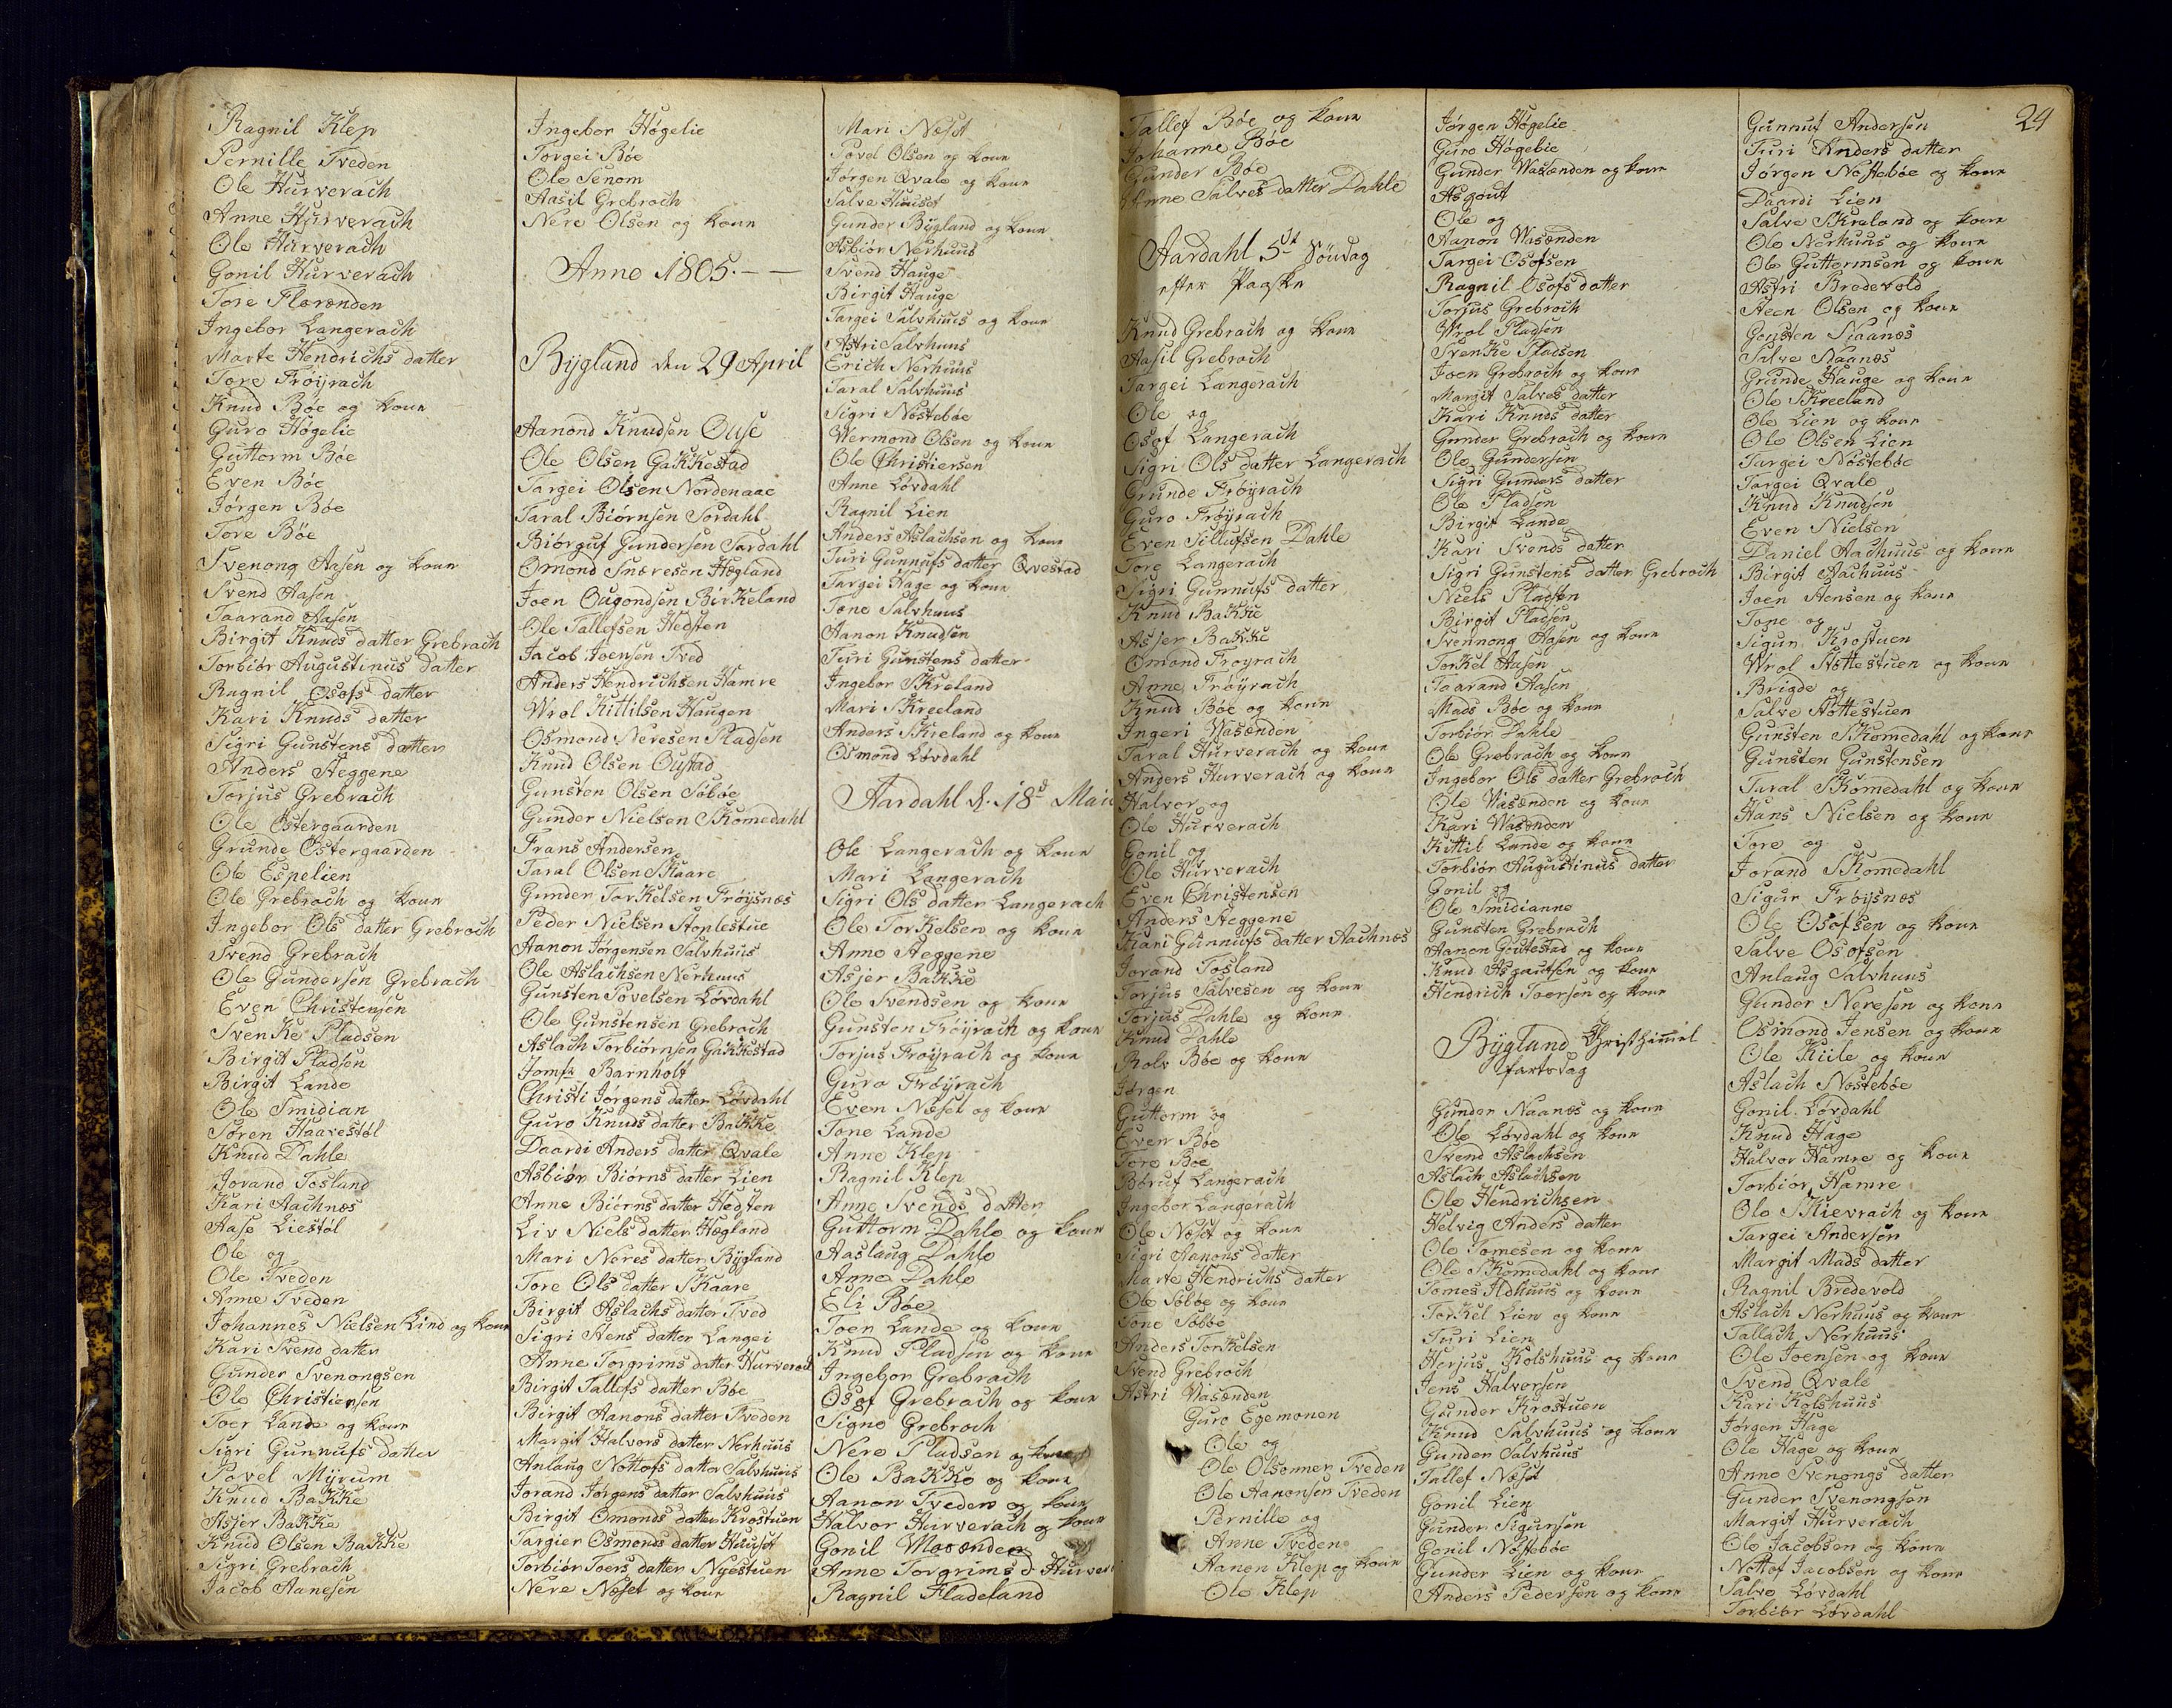 Ragnil Klep
Pernille Tveden
Ole Hurverach
Anne Hurverach
Ole Hurverach
Gonil Hurverach
Tore Flarænden
Ingebor Langerach
Marte Hendrichs datter
Tore Frøÿrach
Knud Bøe og kone
Guro Høgelie
Guttorm Bøe
Even Bøe
Jørgen Bøe
Tore Bøe
Svenong Aasen og kone
Svend Aasen
Taarand Aasen
Birgit Knuds datter Grebrach
Torbiør Augustinus datter
Ragnil Osofs datter
Kari Knuds datter
Sigri Gunstens datter
Anders Aeggene
Torjus Grebrach
Ole Østergaarden
Grunde Østergaarden
Ole Espelien
Ole Grebroch og kone
Ingebor Ols datter Grebroch
Svend Grebrach
Ole Gundersen Grebrach
Even Christensen
Svenke Pladsen
Birgit Pladsen
Birgit Lande
Ole Smidian
Søren Haavestøl
Knud Dahle
Jorand Tosland
Kari Aachnæs
Aase Liestøl
Ole og
Ole Tveden
Anne Tveden
Johannes Nielsen Lind og kone
Kari Svend datter
Gunder Svenongsen
Ole Christiensen
Toer Lande og kone
Sigri Gunnufs datter
Povel Mÿrum
Knud Bakke
Asjer Bakke
Knud Olsen Bakke
Sigri Grebrach
Jacob Aanesen
Ingebor Høgelie
Torgei Bøe
Ole Senom
Aasil Grebroch
Nere Olsen og kone
Anno 1805.
Bÿgland den 29 April
Aanond Knudsen Ouse
Ole Olsen Gakkestad
Targei Olsen Nordenaae
Taral Biørnsen Sordahl
Biørguf Gundersen Sardahl
Omond Snæresen Hægland
Joen Ougondsen Birkeland
Ole Tallefsen Hedsten
Jacob Joensen Tved
Anders Hendrichsen Hamre
Wrol Kittilsen Haugen
Osmond Neresen Pladsen
Knud Olsen Oustad
Gunsten Olsen Søbøe
Gunder Nielsen Skomedahl
Frans Andersen
Taral Olsen Skaare
Gunder Torkelsen Frøÿsnæs
Peder Nielsen Stoplestue
Aanon Jørgensen Salvhuus
Ole Aslachsen Nerhuus
Gunsten Povelsen Løvdahl
Ole Gunstensen Grebroch
Aslach Torbiørnsen Gakkestad
Jomfr Barnholt
Christi Jørgens datter Løvdahl
Guro Knuds datter Bakke
Daardi Anders datter Qvale
Asbiør Biørns datter Lien
Anne Biørns datter Hedsten
Liv Niels datter Hægland
Mari Neres datter Bÿgland
Tore Ols datter Skaare
Birgit Aslachs datter Tved
Sigri Stens datter Langei
Anne Torgrims datter Hurverach
Birgit Tallefs datter Bøe
Birgit Aanons datter Tveden
Margit Halvors datter Nerhuus
Anlaug Nottofs datter Salvhuus
Jorand Jørgens datter Salvhuus
Birgit Omonds datter Krostuen
Targier Osmonds datter Huuset
Torbiør Toers datter Nÿestuen
Nere Næset og kone
Mari Næset
Povel Olsen og kone
Jørgen Qvale og kone
Salve Huuset
Gunder Bÿgland og kone
Asbiør Nerhuus
Svend Hauge
Birgit Hauge
Targei Salvhuus og kone
Astri Salvhuus
Erich Nerhuus
Taral Salvhuus
Sigri Nøstebøe
Wermond Olsen og kone
Ole Christiersen
Anne Løvdahl
Ragnil Lien
Anders Aslachsen og kone
Turi Gunnufs datter Qvestad
Targei Hage og kone
Tone Salvhuus
Aanon Knudsen
Turi Gunstens datter
Ingebor Skreland
Mari Skreeland
Anders Skreland og kone
Osmond Løvdahl
Aardahl d. 18d Maii
Ole Langerach og kone
Mari Langerach
Sigri Ols datter Langerach
Ole Torkelsen og kone
Anne Aeggene
Asjer Bakke
Ole Svendsen og kone
Gunsten Frøÿrach og kone
Torjus Frøÿrach og kone
Guro Frøÿrach
Even Næset og kone
Tone Lande
Anne Klep
Ragnil Klep
Anne Svends datter
Guttorm Dahle og kone
Aaslaug Dahle
Anne Dahle
Eli Bøe
Toer Lande og kone
Knud Pladsen og kone
Ingebor Grebrach
Osof Grebrach og kone
Signe Grebroch
Nere Pladsen og kone
Ole Bakke og kone
Aanon Tveden og kone
Halvor Hurverach og kone
Gonil Wasænden
Anne Torgrims d Hurver
Ragnil Fladeland
Tallef Bøe og kone
Johanne Bøe
Gunder Bøe
Anne Salves datter Dahle
Aardahl 5te Søndag
efter Paaske
Knud Grebrach og kone
Aasil Grebroch
Targei Langerach
Ole og
Osof Langerach
Sigri Ols datter Langerach
Grunde Frøÿrach
Guro Frøÿrach
Even Sillufsen Dahle
Tore Langerach
Sigri Gunnufs datter
Knud Bakke
Asjer Bakke
Omond Frøÿrach
Anne Frøÿrach
Knud Bøe og kone
Ingeri Wasænden
Taral Hurverach og kone
Anders Hurverach og kone
Halvor og
Ole Hurverach
Gonil og
Ole Hurverach
Even Christensen
Anders Aeggene
Kari Gunnufs datter Aachnæs
Jorand Tosland
Torjus Salvesen og kone
Torjus Dahle og kone
Knud Dahle
Rolv Bøe og kone
Jørgen
Guttorm og
Even Bøe
Tore Bøe
Børuf Langerach
Ingebor Langerach
Ole Næset og kone
Sigri Aanons datter
Marte Hendrichs datter
Ole Søbøe og kone
Tone Søbøe
Anders Torkelsen
Svend Grebroch
Astri Wasænden
Guro Egemonen
Ole og
Ole Olsønner Tveden
Ole Aanonsen Tveden
Pernille og
Anne Tveden
Aanon Klep og kone
Ole Klep
Jørgen Høgelie
Guro Høgelie
Gunder Wasænden og kone
Asgout
Ole og
Aanon Wasænden
Targei Osofsen
Ragnil Osofs datter
Torjus Grebroch
Wrol Pladsen
Svenke Pladsen
Joen Grebroch og kone
Margit Salves datter
Kari Knuds datter
Gunder Grebrach og kone
Ole Gundersen
Sigri Gunders datter
Ole Pladsen
Birgit Lande
Kari Svends datter
Sigri Gunstens datter Grebroch
Niels Pladsen
Birgit Pladsen
Svennong Aasen og kone
Torkel Aasen
Taarand Aasen
Mads Bøe og kone
Torbiør Dahle
Ole Grebrach og kone
Ingebor Ols datter Grebroch
Ole Wasænden og kone
Kari Wasænden
Kittil Lande og kone
Torbiør Augustinus datter
Gonil og
Ole Smidianne
Gunsten Grebrach
Aanon Goutestad og kone
Knud Asgautsen og kone
Hendrich Toersen og kone
Bÿgland Christhimmel
fartsdag
Gunder Naanæs og kone
Ole Løvdahl og kone
Svend Aslachsen
Aslach Aslachsen
Ole Hendrichsen
Helvig Anders datter
Ole Tomesen og kone
Ole Skomedahl og kone
Tomes Ildhuus og kone
Torkel Lien og kone
Turi Lien
Herjus Kolshuus og kone
Jens Halvorsen
Gunder Krostuen
Knud Salvhuus og kone
Gunder Salvhuus
Tallef Næset
Gonil Lien
Gunder Sigursen
Gonil Nøstebøe
Gunder Lien og kone
Anders Pedersen og kone
24
Gunnuf Andersen
Turi Anders datter
Jørgen Nøstebøe og kone
Daardi Lien
Salve Skreland og kone
Ole Nerhuus og kone
Ole Guttormsen og kone
Astri Bredevold
Steen Olsen og kone
Gousten Naanæs
Salve Naanæs
Grunde Hauge og kone
Ole Skreeland
Ole Lien og kone
Ole Olsen Lien
Targei Nøstebøe
Targei Qvale
Knud Knudsen
Even Nielsen
Daniel Aachuus og kone
Birgit Aachuus
Joen Stensen og kone
Tone og
Sigur Krostuen
Wrol Støttestuen og kone
Brigde og
Salve Støttestuen
Gunsten Skomedahl og kone
Gunsten Gunstensen
Taral Skomedahl og kone
Hans Nielsen og kone
Tore og
Jorand Skomedahl
Sigur Frøÿsnæs
Ole Osofsen og kone
Salve Osofsen
Anlaug Salvhuus
Gunder Neresen og kone
Osmond Jensen og kone
Ole Kiile og kone
Aslach Nøstebøe
Gonil Løvdahl
Knud Hage
Halvor Hamre og kone
Torbiør Hamre
Ole Skievrach og kone
Targei Andersen
Margit Mads datter
Ragnil Bredevold
Aslach Nerhuus og kone
Tallach Nerhuus
Ole Joensen og kone
Svend Qvale
Kari Kolshuus
Jørgen Hage
Ole Hage og kone
Anne Svenongs datter
Gunder Svenongsen
Margit Hurverach
Ole Jacobsen og kone
Nottof Jacobsen og kone
Salve Løvdahl
Torbiør Løvdahl